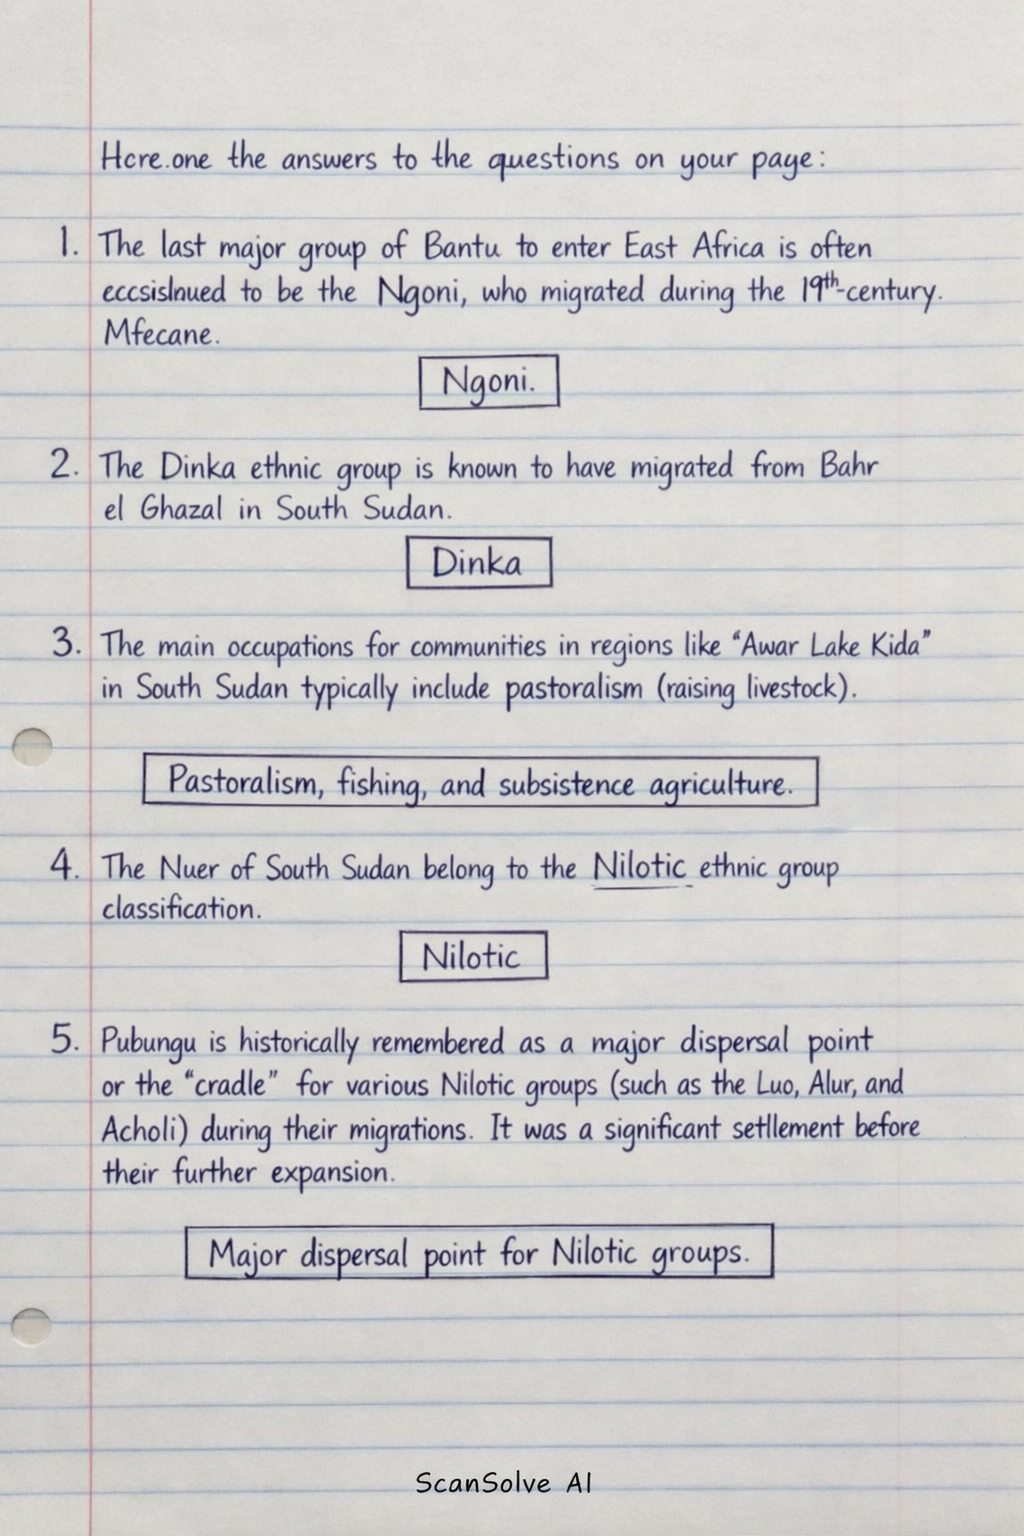 Hcre.one the answers to the questions on your page:
1. The last major group of Bantu to enter East Africa is often
eccsislnued to be the Ngoni, who migrated during the 19th-century.
Mfecane.
Ngoni.
2. The Dinka ethnic group is known to have migrated from Bahr
el Ghazal in South Sudan.
Dinka
3. The main occupations for communities in regions like “Awar Lake Kida”
in South Sudan typically include pastoralism (raising livestock).
Pastoralism, fishing, and subsistence agriculture.
4. The Nuer of South Sudan belong to the Nilotic ethnic group
classification.
Nilotic
5. Pubungu is historically remembered as a major dispersal point
or the “cradle” for various Nilotic groups (such as the Luo, Alur, and
Acholi) during their migrations. It was a significant setllement before
their further expansion.
Major dispersal point for Nilotic groups.
ScanSolve AI